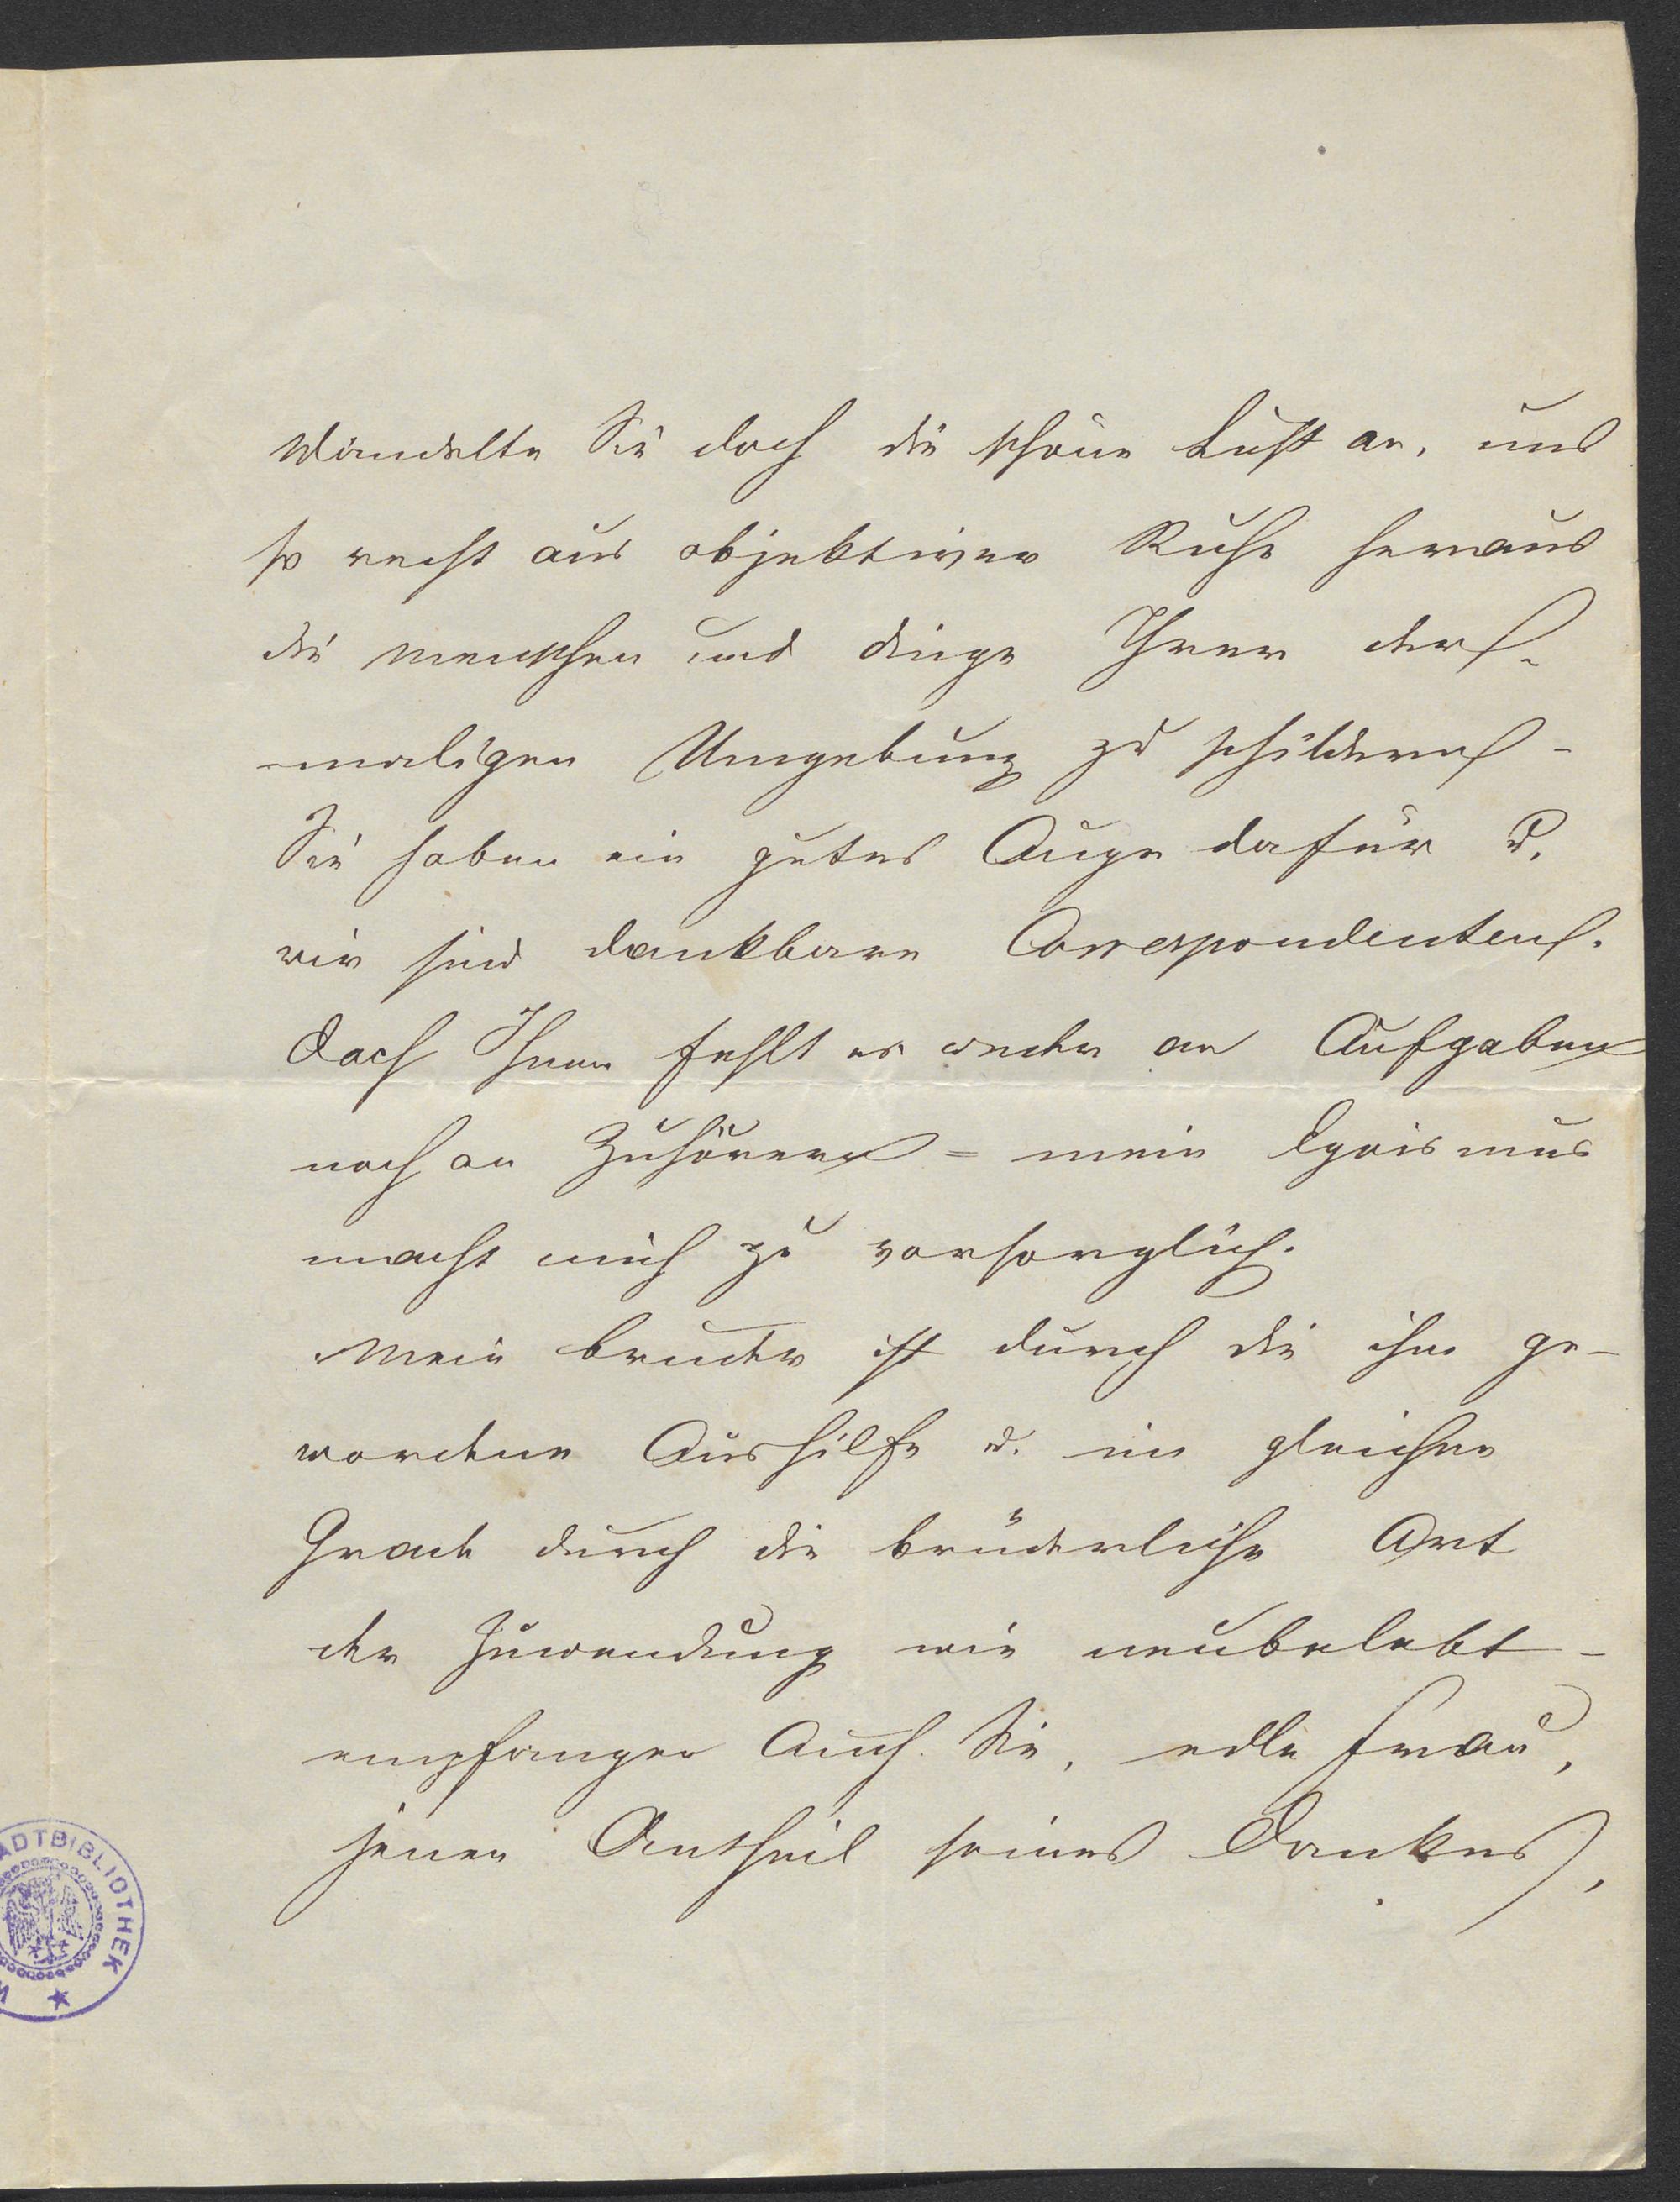 Wandelte Sie doch die schöne Lust an, uns
so recht aus objektiver Ruhe heraus
die Menschen und Dinge Ihrer der-
-maligen Umgebung zu schildern -
Sie haben ein gutes Auge dafür u.
wir sind dankbare Correspondenten.
Doch Ihnen fehlt es weder an Aufgaben
noch an Zuhörern = mein Egoismus
macht mich zu vorsorglich.
Mein Bruder ist durch die ihm ge-
wordene Aushilfe u. im gleichen
Grade durch die brüderliche Art
der Zuwendung wie neubelebt -
empfangen Auch Sie, edle Frau,
jenen Antheil seines Dankes,
ADTBIBLIOTHEK
W